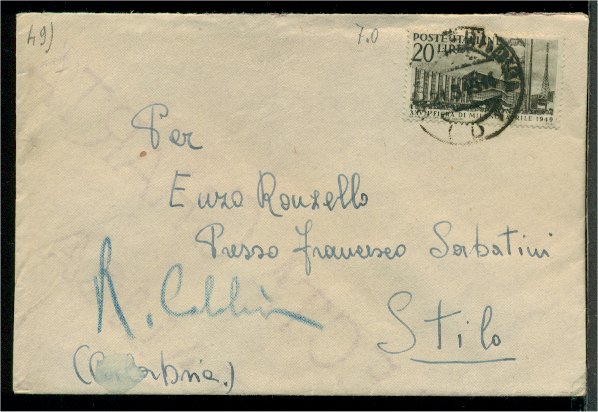 49)
7.0
POSTE ITALIANE
20 LIRE
FIERA DI MILANO APRILE 1949
Per
Enzo Ronzello
Presso Francesco Sorbatini
Stilo
R.
(Calabria.)